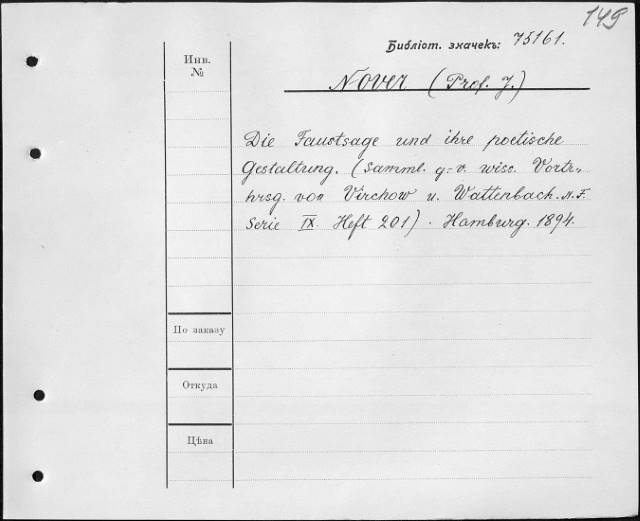 149
Библіот. значекъ: 75161.
Инв.
№
Nover (Prof. J.)
Die Faustsage und ihre poetische
Gestaltung. (Samml. g=v. wisc. Vortr.,
hrsg. von Virchow u. Wattenbach. N.F.
Serie IX. Heft 201). Hamburg. 1894.
По заказу
Откуда
Цѣна